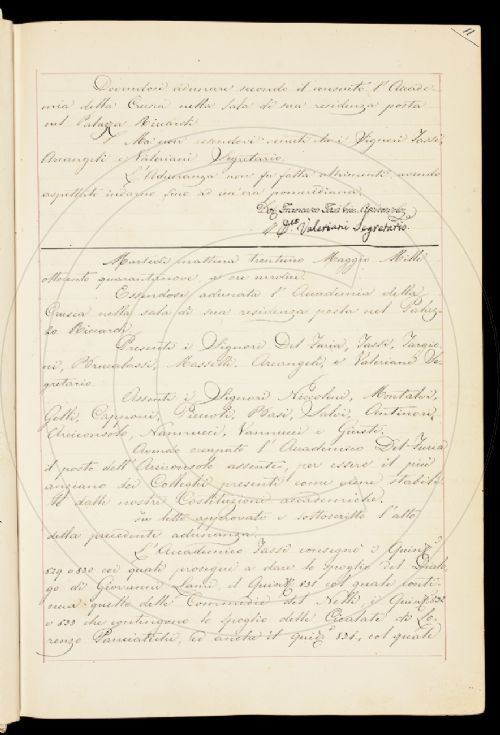 11
Dovendosi adunare secondo il consueto l'Accade-
mia della Crusca nella sala di sua residenza posta
nel Palazzo Riccardi
Ma non essendovi venuti che i Signori Tassi,
Arcangeli e Valeriani Segretario.
L'Adunanza non fu fatta altrimenti, avendo
aspettato indarno fino ad un'ora pomeridiana.
Valeriani Segretario.
Martedì mattina trentuno Maggio Mille
ottocento quarantanove a ore undici.
Essendosi adunata l'Accademia della
Crusca nella sala di sua residenza posta nel Palaz-
zo Riccardi.
Presenti i Signori Del Furia, Tassi, Targio-
ni, Brucalassi, Masselli, Arcangeli, e Valeriani Se-
gretario.
Assenti i Signori Niccolini, Montalvi,
Gelli, Capponi, Piccioli, Basi, Salvi, Antinori,
Arciconsolo, Nannucci, Vannucci e Giusti.
Avendo occupato l'Accademico Del Furia
il posto dell'Arciconsolo assente, per essere il più
anziano dei Colleghi presenti come viene stabili-
to dalle nostre Costituzione accademiche.
fu letto approvato e sottoscritto l'atto
della precedente adunanza.
L'Accademico Tassi consegnò i Quint.
529 e 530 coi quali prosegue a dare lo spoglio del Dialo-
go di Giovanni Lami, il Quint. 531 col quale conti-
nua quello delle Commedie del Nelli i Quint. 532
e 533 che contengono lo spoglio delle Cicalate di Lo-
renzo Panciatichi, ed anche il quint. 534, col quale